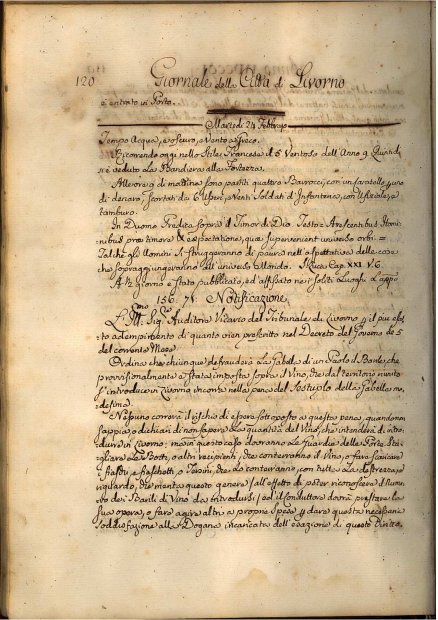 120 Giornale della Città di Livorno
è entrato in Porto.
Martedì 24 Febbrajo
Tempo Acqua, e oscuro, Vento a Greco.
Ricorrendo oggi nello Stile Francese il 5 Ventoso dell'Anno 9
si è veduto la Bandiera alla Fortezza.
Alle ore 9 di mattina sono partiti quattro Barrocci, con
di denaro, scortati da 6 Usseri, e Venti Soldati d'Infanteria, con Ufiziale, e
tamburo.
In Duomo Predica sopra il Timor di Dio. Testo: Arescentibus Homi-
nibus prae timore & expectatione, quae supervenient universo orbi =
Talchè gli Uomini si struggeranno di paura nell'aspettativa delle cose
che sopraggiungeranno all'universo Mondo. S. Luca Cap. XXI. V. 6
A ½ giorno è stato pubblicato, ed affisso ne' soliti Luoghi L'appo
156. 71. Notificazione
L'Ill.mo Sig.re Auditore Vicario del Tribunale di Livorno p il più esat-
to adempimento di quanto vien prescritto nel Decreto del Governo de 5
del corrente Mese
Ordina che chiunque defrauderà La Gabella di un Paolo il Barile, che
provvisionalmente è stata imposta sopra il Vino, che dal territorio riunito
s'introduce in Livorno incorra nella pena del Sestuplo della Gabella me-
desima.
Nessuno correrà il rischio di essere sottoposto a questa pena, quando non
sappia, o dichiari di non sapere La quantità del Vino, che intenderà d'intro-
durre in Livorno; ma in questo caso dovranno Le Guardie delle Porte Sta-
gliare Le Botti, o altri recipienti, che conterranno il Vino, o fare scaricare
i fiaschi, e fiaschetti o Terzini, che Lo conteranno, con tutta La destrezza, e
riguardo, che merita questo genere / all'effetto di poter riconoscere il Nume-
ro dei Barili di Vino da introdursi / ed il Conduttore dovrà prestare La
sua opera, o fare agire altri a proprie Spese p dare questa necessaria
soddisfazione alla Dogana incaricata dell'esazione di questo Diritto.